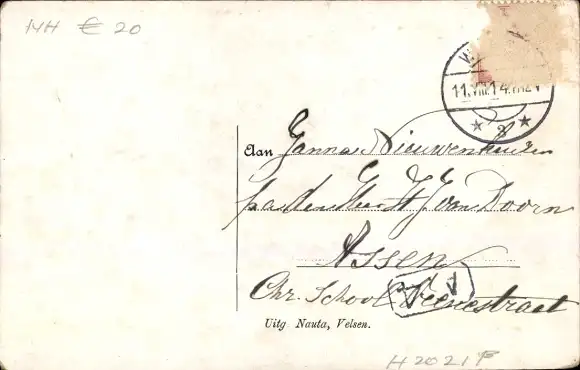 14H € 20
11.VIII.14.
Aan Janna Nieuwenhuizen
J. van Doorn
Assen
Chr. School Veenestraat
Uitg Nauta, Velsen.
H2021F